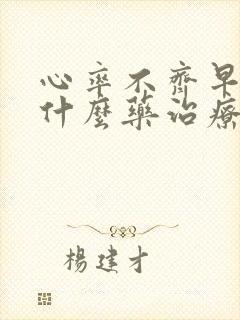 心率不齊早
什麼藥治療
楊建才